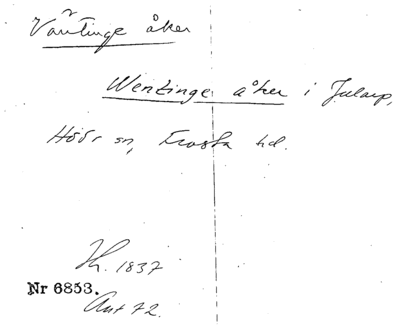 Väntinge åker
Wentinge åker i Jularp,
Höör sn, Frosta hd.
Th. 1837
Nr 6853.
Ant 72.